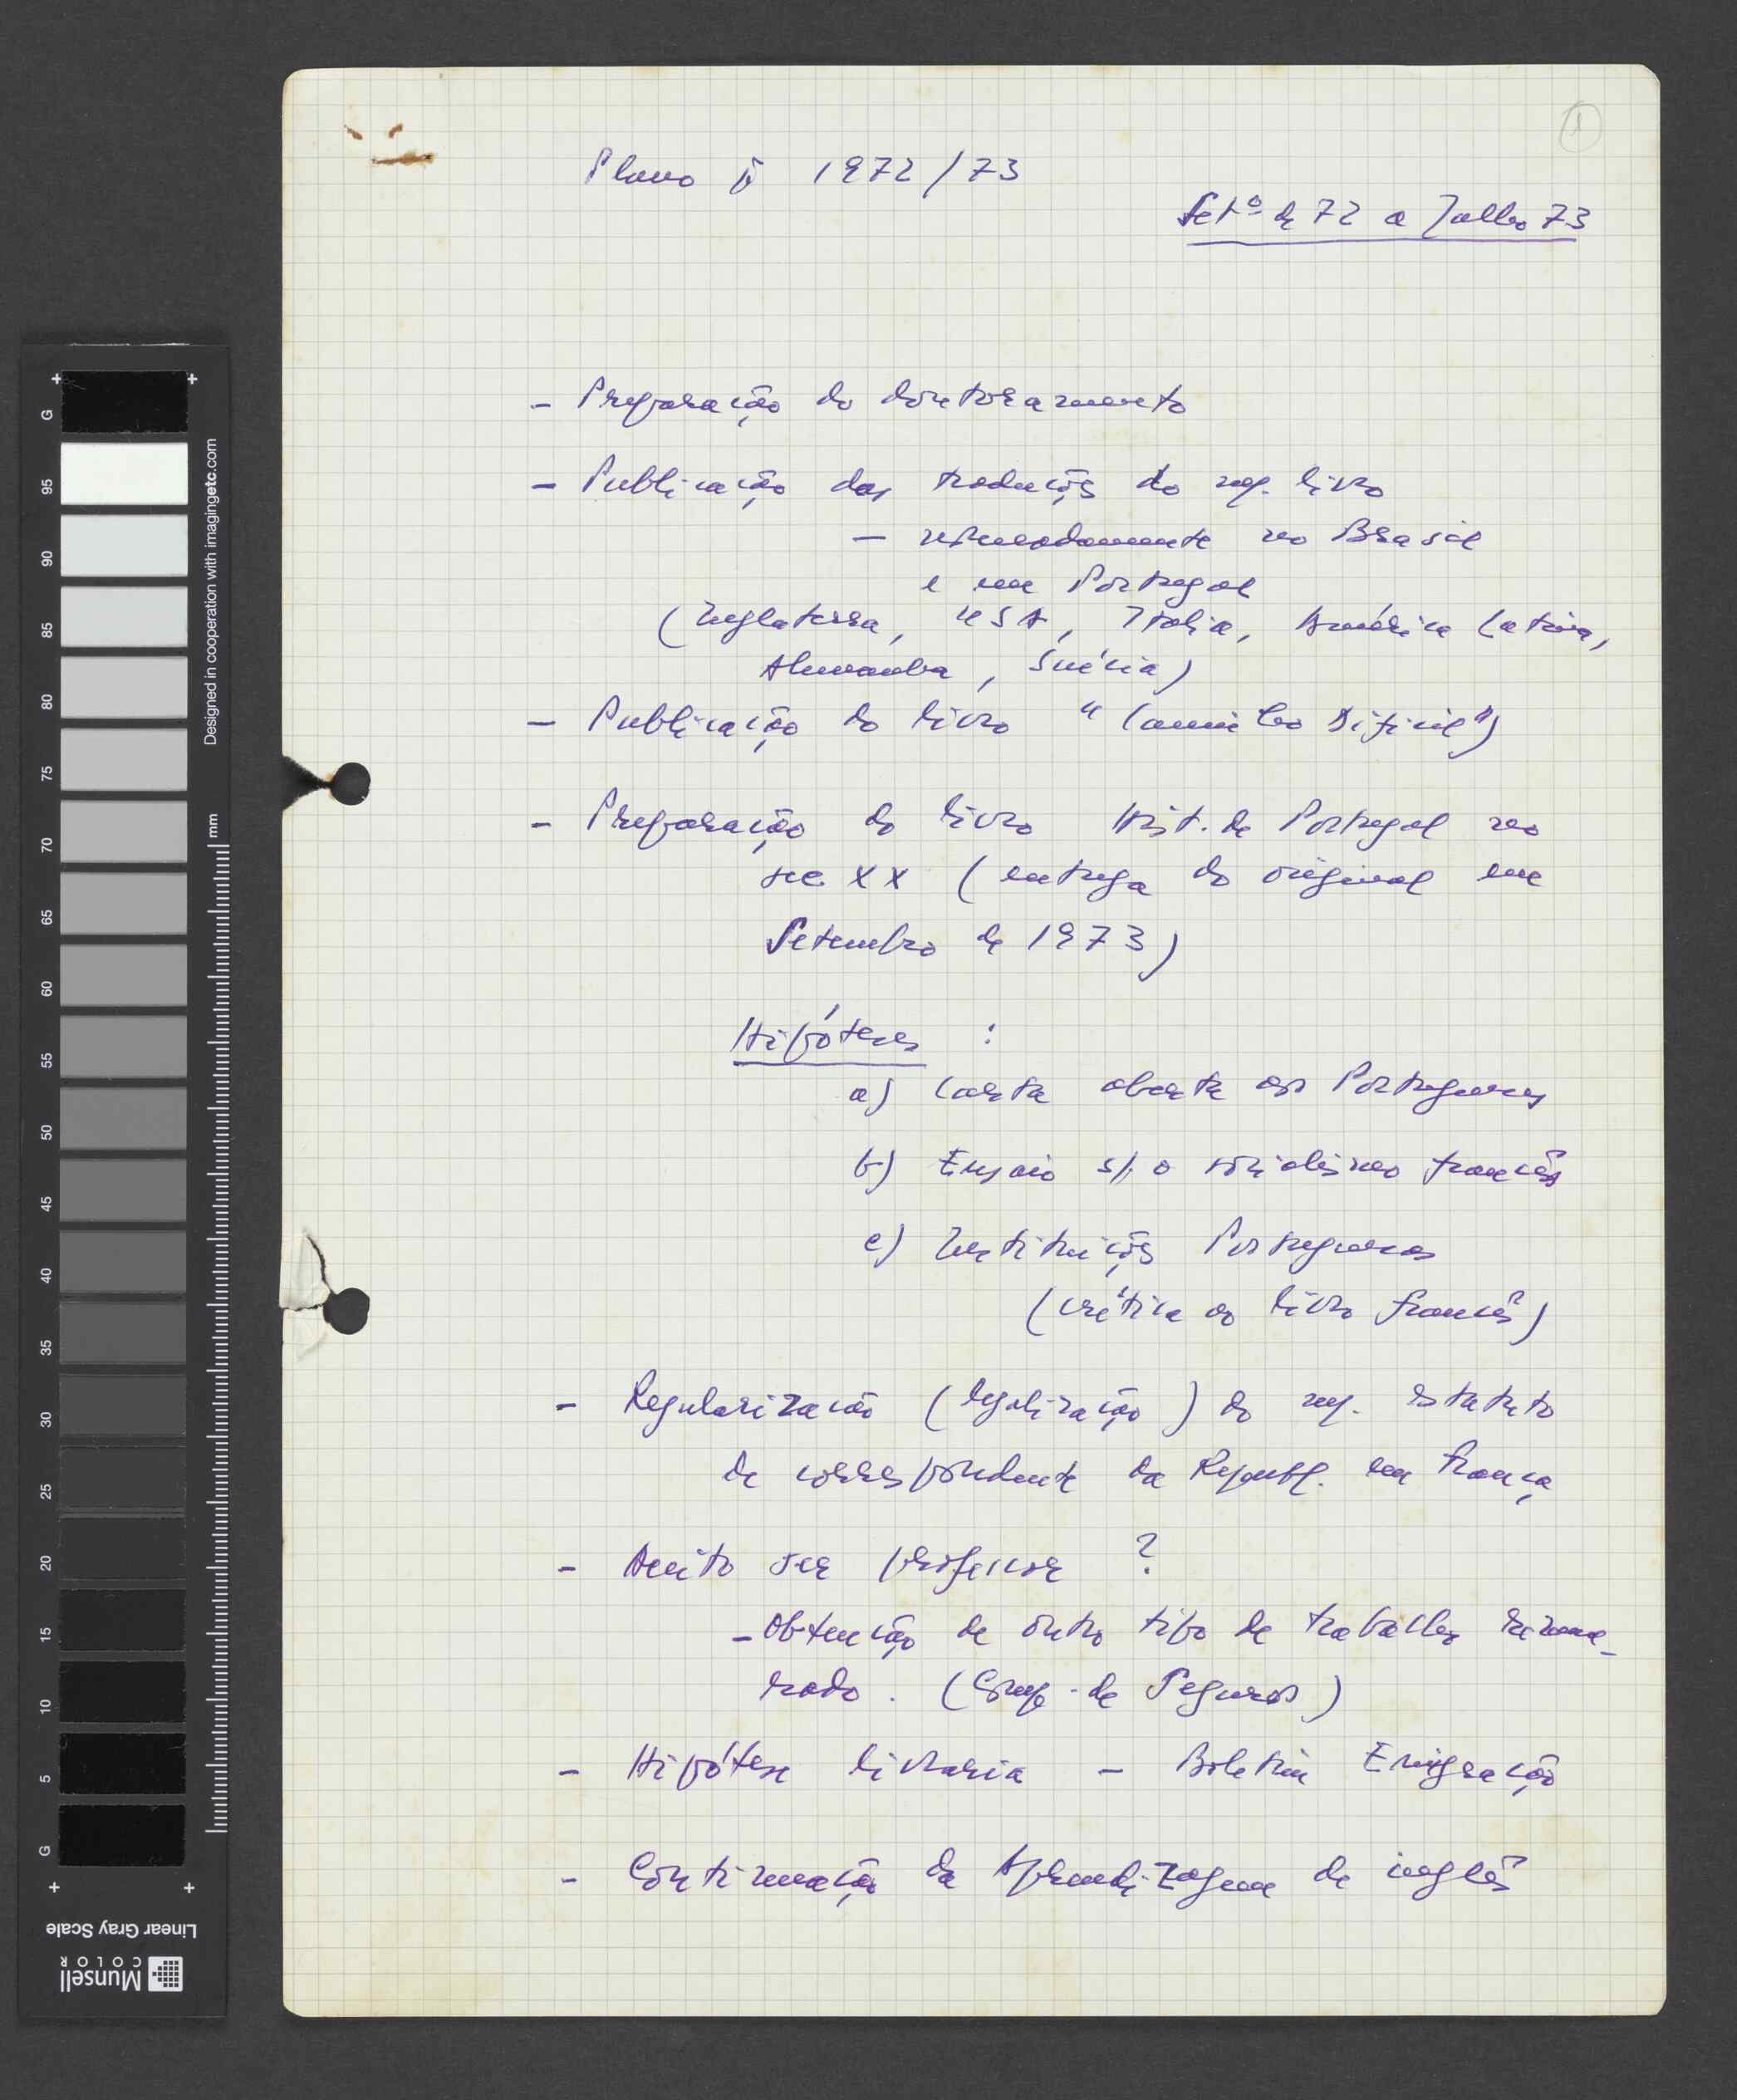 1
Plano p̃ 1972/73
Setº de 72 a Julho 73
- Preparação do doutoramento
- Publicação das traduções do meu livro
- nomeadamente no Brasil
e em Portugal
(Inglaterra, USA, Itália, América Latina,
Alemanha, Suécia)
- Publicação do livro "Caminho Difícil")
- Preparação do livro Hist. de Portugal no
sec XX (entrega do original em
Setembro de 1973)
Hipóteses :
a) Carta aberta aos Portugueses
b) Ensaio s/ o socialismo francês
c) Instituições Portuguesas
(crítica ao livro francês)
- Regularização (legalização) do meu estatuto
de correspondente da Republ. em França
- Aceito ser professor ?
- Obtenção de outro tipo de trabalho remune-
rado. (Comp. de Seguros)
- Hipótese livraria - Boletim Emigração
- Continuação da Aprendizagem de inglês
G
95
90
85
80
75
70
65
60
55
50
45
40
35
30
25
20
15
10
5
G
Designed in cooperation with imagingetc.com
mm
Linear Gray Scale
Munsell
COLOR